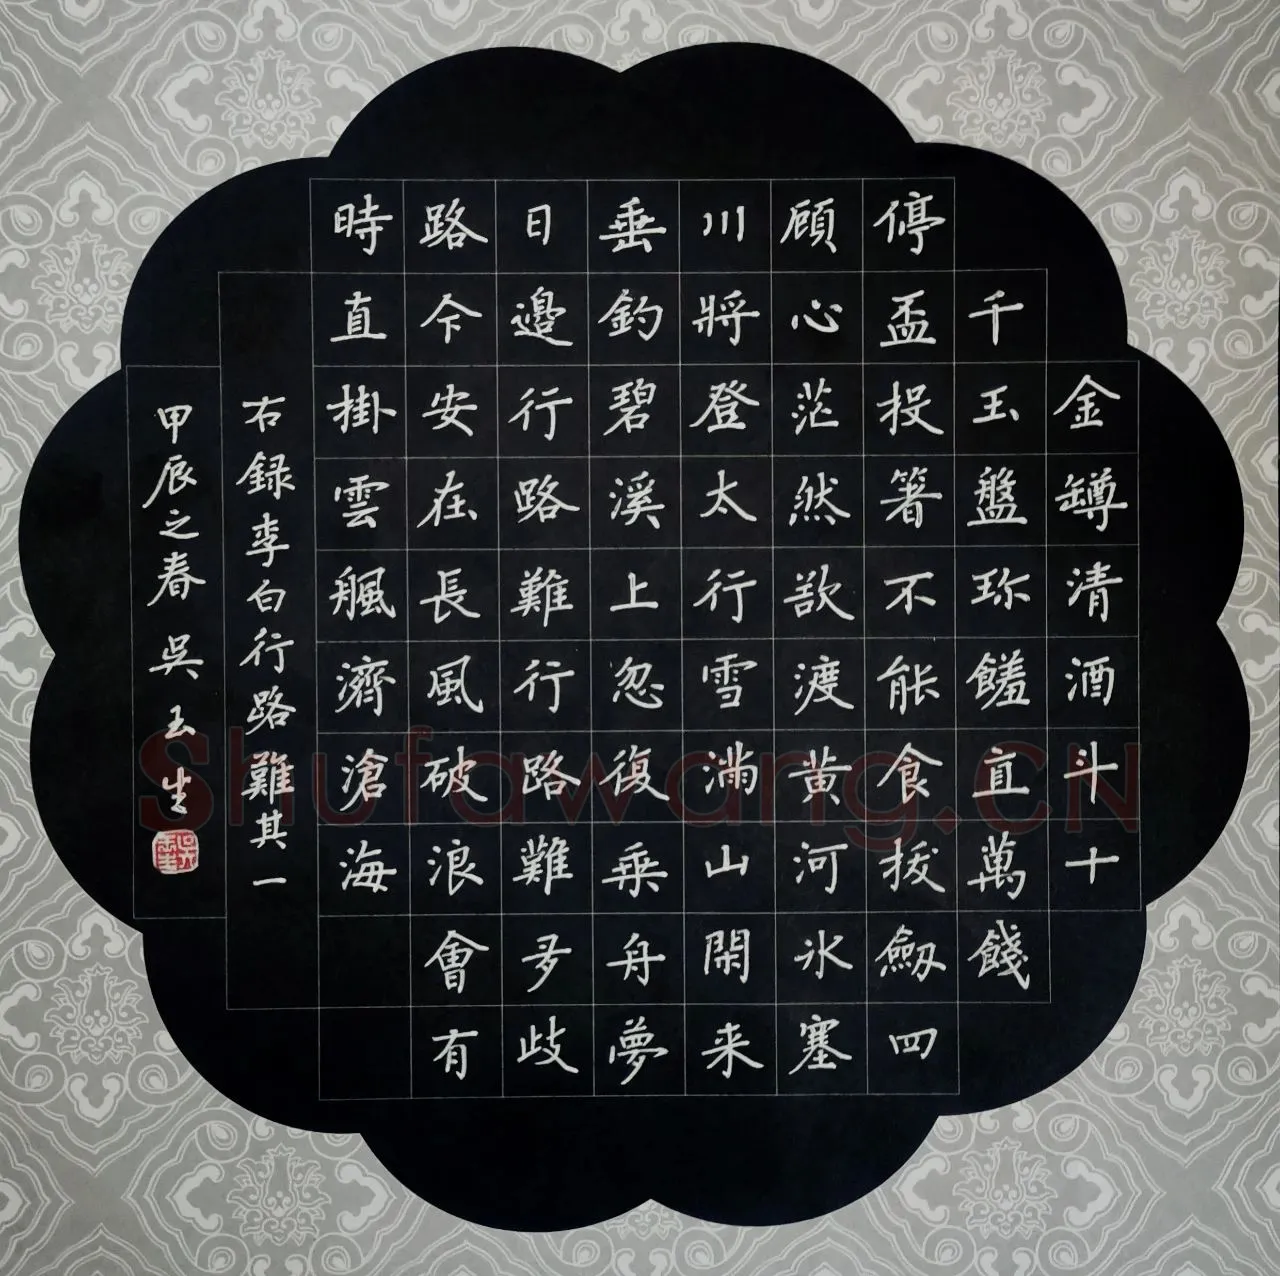 金罇清酒斗十
千玉盤珎饈直萬餞
停盃投箸不能食拔劒四
顧心茫然欲渡黄河氷塞
川將登太行雪滿山閑来
垂釣碧溪上忽復乘舟夢
日邊行路難行路難多歧
路今安在長風破浪會有
時直掛雲颿濟滄海
右録李白行路難其一
甲辰之春吳玉生
Shufawang.CN